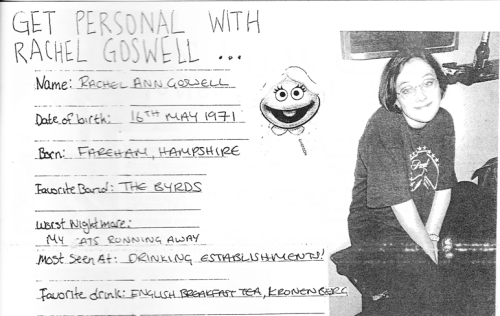 GET PERSONAL WITH
RACHEL GOSWELL ...
Name: RACHEL ANN GOSWELL
Date of birth: 16TH MAY 1971
Born: FAREHAM, HAMPSHIRE
Favorite Band: THE BYRDS
Worst Nightmare:
MY 'ATS RUNNING AWAY
Most Seen At: DRINKING ESTABLISHMENTS!
Favorite drink: ENGLISH BREAKFAST TEA, KRONENBERG